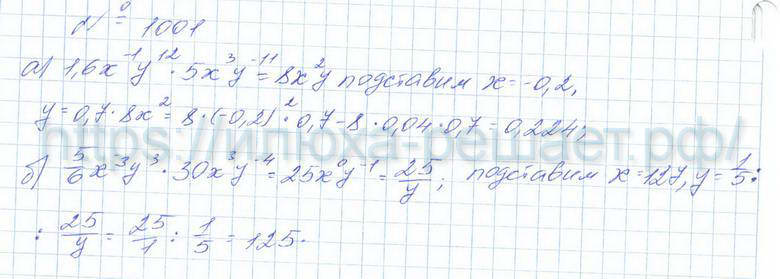 № 1001
а) 1,6x⁻¹y¹² · 5x³y⁻¹¹ = 8x²y подставим x = -0,2,
y = 0,7 · 8x² = 8 · (-0,2)² · 0,7 - 8 · 0,04 · 0,7 = 0,224;
https://илюха-решает.рф/
б) 5/6 x⁻³y³ · 30x³y⁻⁴ = 25x⁰y⁻¹ = 25/y; подставим x = 127, y = 1/5 :
: 25/y = 25/1 : 1/5 = 125.